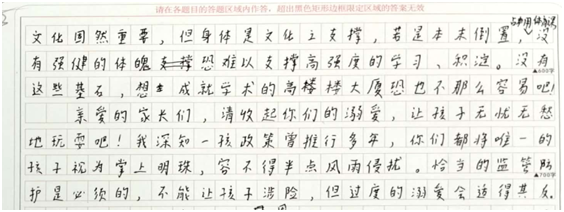 请在各题目的答题区域内作答，超出黑色矩形边框限定区域的答案无效
文化固然重要，但身体是文化之支撑，若是本末倒置，没
有强健的体魄恐难以支撑高强度的学习、积淀。没有
▲600字
这些基石，想成就学术的高楼大厦恐也不那么容易吧！
亲爱的家长们，请收起你们的溺爱，让孩子无忧无愁
地玩耍吧！我深知一孩政策曾推行多年，你们都将唯一的
孩子视为掌上明珠，容不得半点风雨侵扰。恰当的监管防
▲700字
护是必须的，不能让孩子涉险，但过度的溺爱会适得其反。